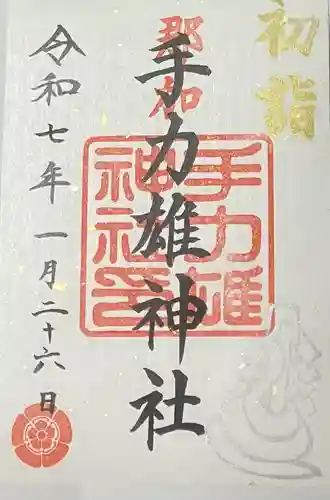 初詣
那加
手力雄神社
手力雄
神社印
令和七年一月二十六日